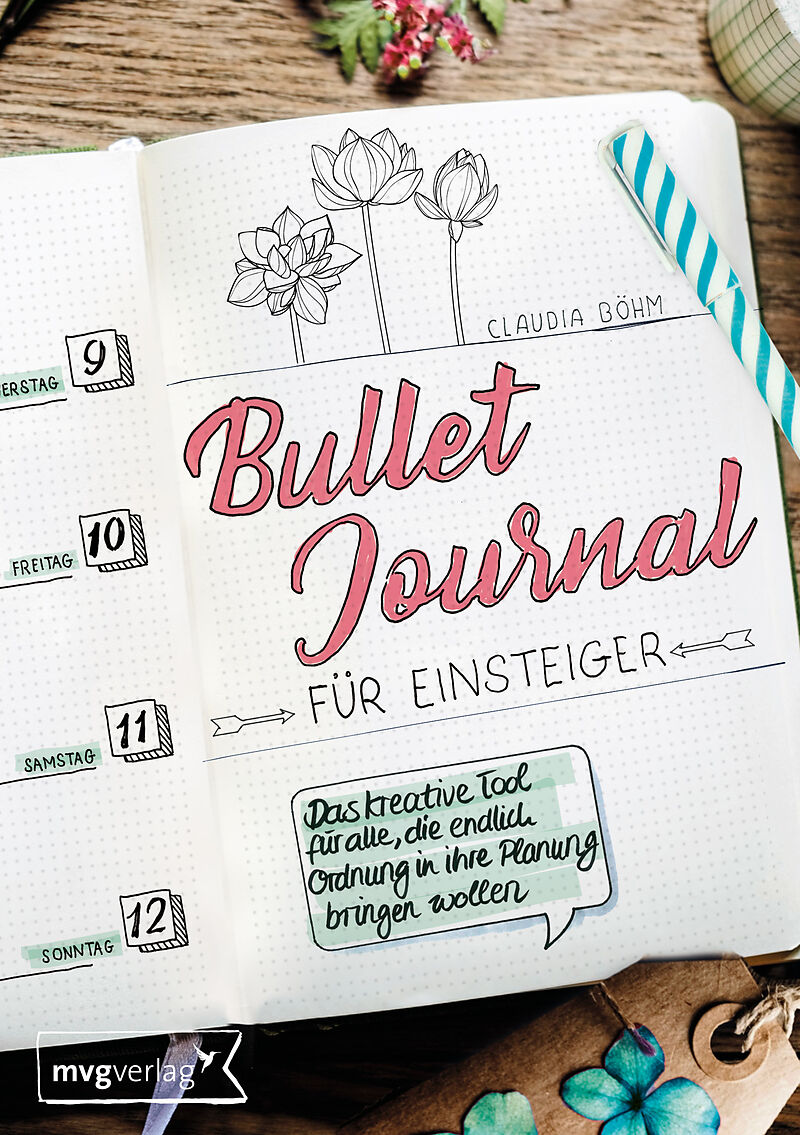 CLAUDIA BÖHM
Bullet
Journal
FÜR EINSTEIGER
Das kreative Tool
für alle, die endlich
Ordnung in ihre Planung
bringen wollen
ERSTAG 9
FREITAG 10
SAMSTAG 11
SONNTAG 12
mvgverlag